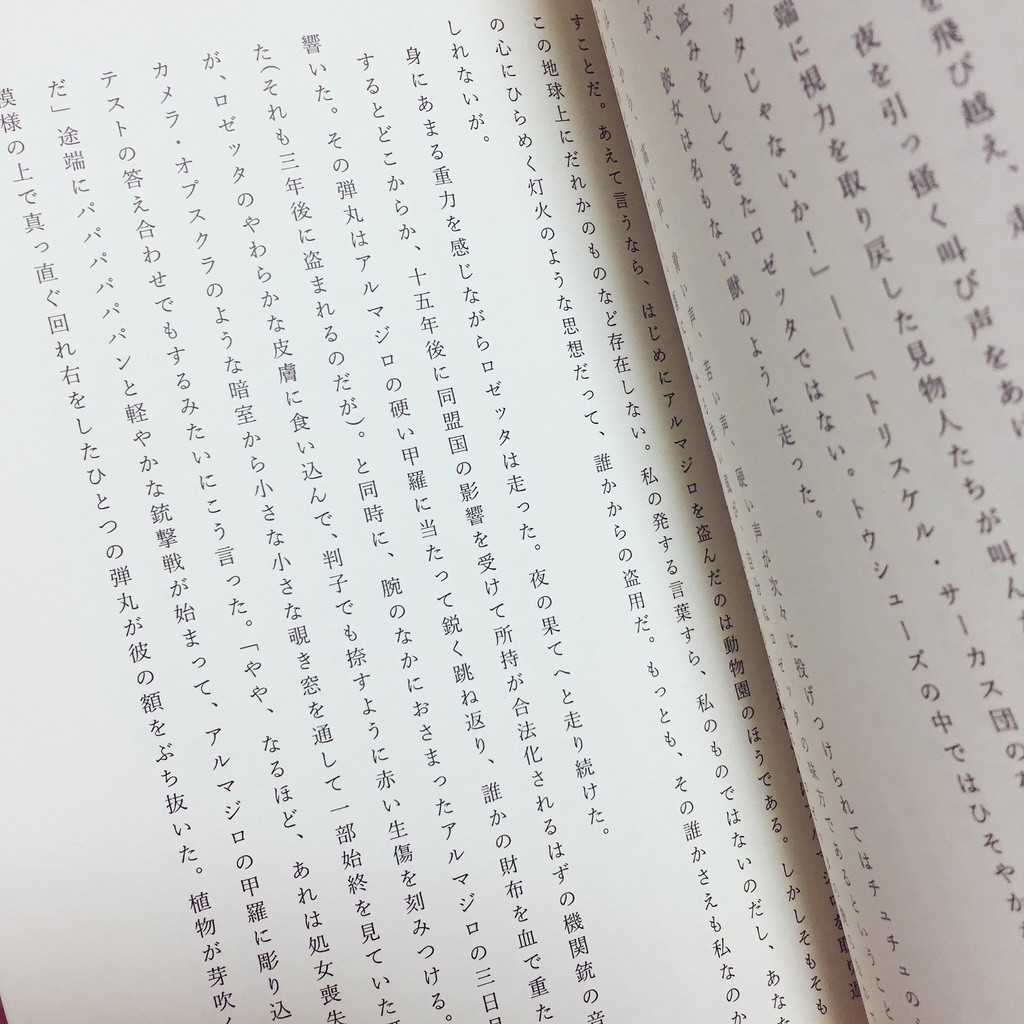 を飛び越え、走
夜を引っ掻く叫び声をあげ
端に視力を取り戻した見物人たちが叫んだ
ッタじゃないか！」——「トリスケル・サーカス団の
盗みをしてきたロゼッタではない。トウシューズの中ではひそやか
が、彼女は名もない獣のように走った。
苦い声、硬い声が次々に投げつけられてはチュチュの
すことだ。あえて言うなら、はじめにアルマジロを盗んだのは動物園のほうである。しかしそもそも
この地球上にだれかのものなど存在しない。私の発する言葉すら、私のものではないのだし、あなた
の心にひらめく灯火のような思想だって、誰かからの盗用だ。もっとも、その誰かさえも私なのか
しれないが。
身にあまる重力を感じながらロゼッタは走った。夜の果てへと走り続けた。
するとどこからか、十五年後に同盟国の影響を受けて所持が合法化されるはずの機関銃の音
響いた。その弾丸はアルマジロの硬い甲羅に当たって鋭く跳ね返り、誰かの財布を血で重た
た（それも三年後に盗まれるのだが）。と同時に、腕のなかにおさまったアルマジロの三日月
が、ロゼッタのやわらかな皮膚に食い込んで、判子でも捺すように赤い生傷を刻みつける。
カメラ・オプスクラのような暗室から小さな小さな覗き窓を通して一部始終を見ていた
テストの答え合わせでもするみたいにこう言った。「やや、なるほど、あれは処女喪失
だ」途端にパパパパパンと軽やかな銃撃戦が始まって、アルマジロの甲羅に彫り込
模様の上で真っ直ぐ回れ右をしたひとつの弾丸が彼の額をぶち抜いた。植物が芽吹く